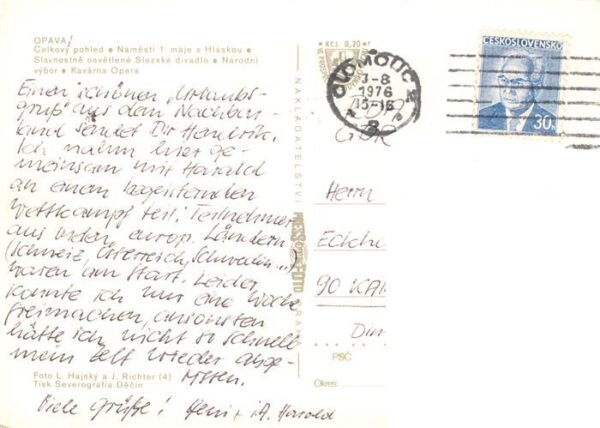 OPAVA
Celkový pohled • Náměstí 1. máje a Hláskou •
Slavnostně osvětlené Slezské divadlo • Národní
výbor • Kavárna Opera
Einen schönen „Urlaubs-
gruß" aus dem Nachbar-
land sendet Dir
Ich nahm hier ge-
meinsam mit Harald
an einem
Wettkampf teil. Teilnehmer
aus vielen europ. Ländern
(Schweiz, Österreich, Schweden...)
waren am Start. Leider
konnte ich nur eine Woche
freimachen, ansonsten
hätte ich nicht so schnell
mein Zelt wieder abge-
rissen.
Foto L. Hajský a J. Richter (4)
Tisk Severografia Děčín
Viele Grüße! Heini + i.A. Harald
Kčs 0,20
NAKLADATELSTVÍ
PRESSFOTO
OLOMOUC
3-8
1976
15-16
2
ČESKOSLOVENSKO
30h
DDR
Herrn
90
PSČ
Okres: